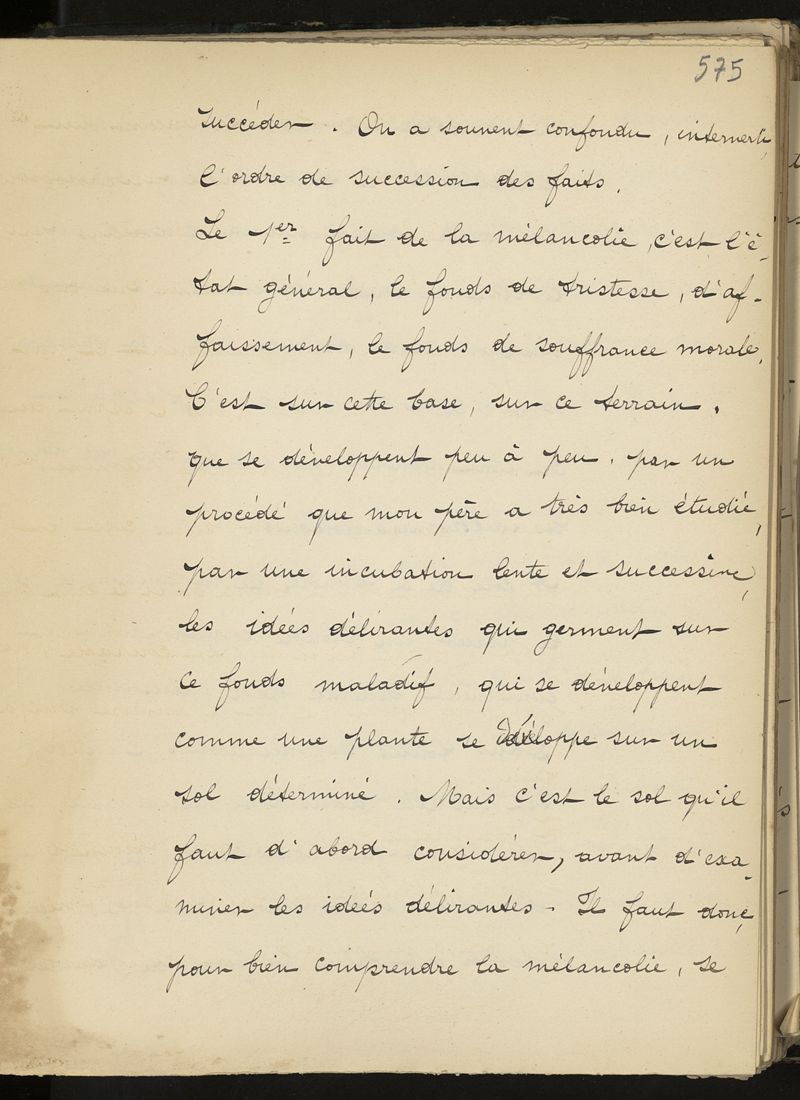 575
succéder. On a souvent confondu, interverti,
l'ordre de succession des faits.
Le 1er fait de la mélancolie, c'est l'é-
tat général, le fonds de tristesse, d'af-
faissement, le fonds de souffrance morale.
C'est sur cette base, sur ce terrain,
que se développent peu à peu, par un
procédé que mon père a très bien étudié,
par une incubation lente et successive,
les idées délirantes qui germent sur
ce fonds maladif, qui se développent
comme une plante se développe sur un
sol déterminé. Mais c'est le sol qu'il
faut d'abord considérer, avant d'exa-
miner les idées délirantes. Il faut donc,
pour bien comprendre la mélancolie, se